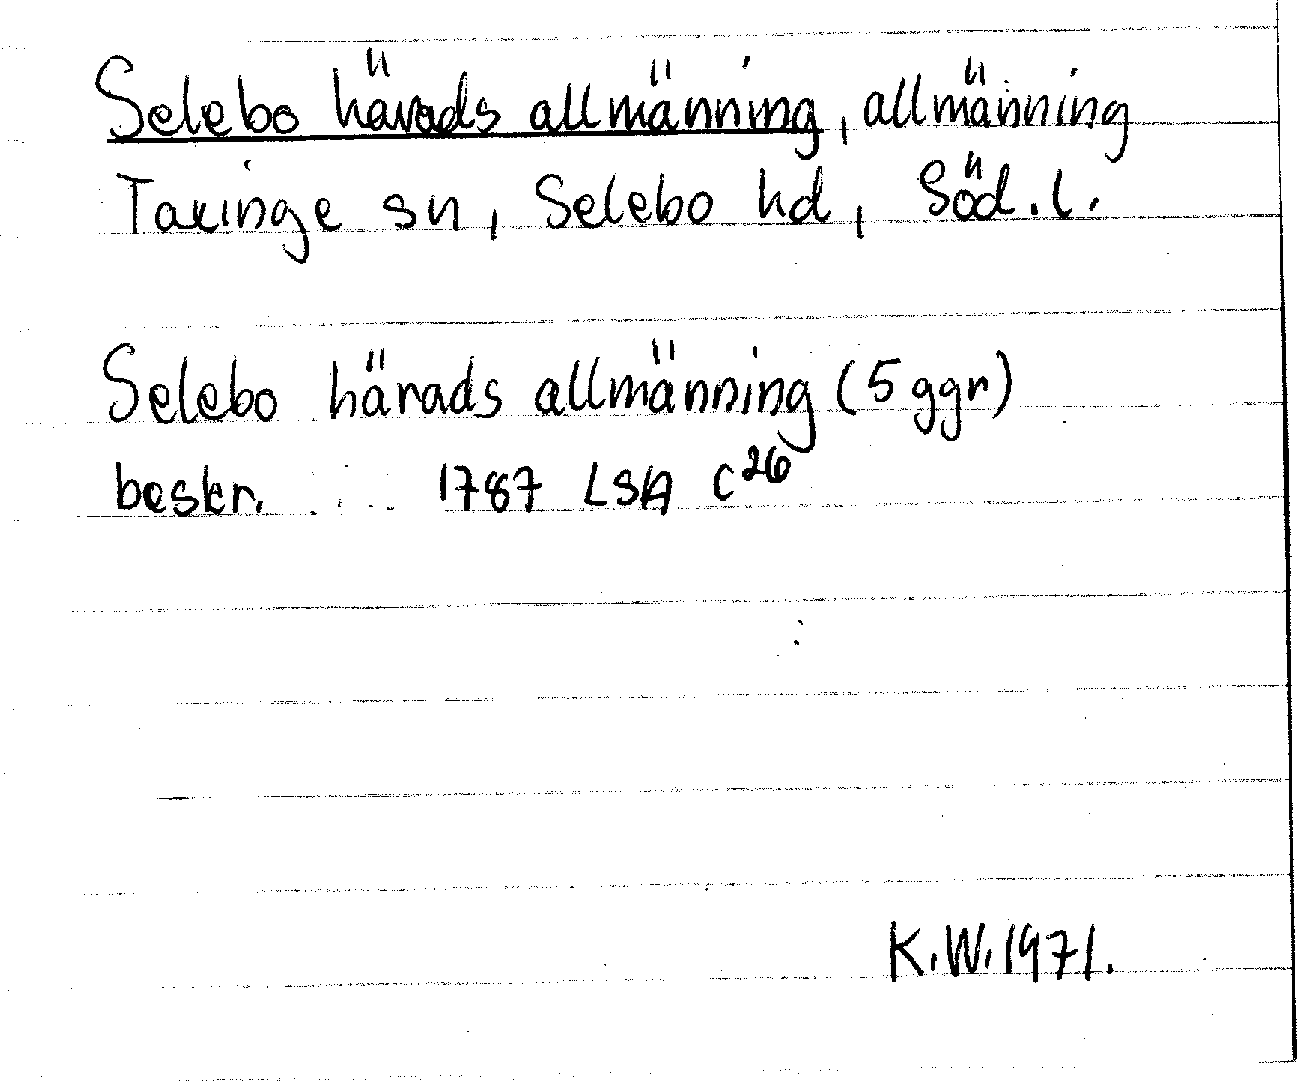 Selebo härads allmänning, allmänning
Taxinge sn, Selebo hd, Söd. l.
Selebo härads allmänning (5 ggr)
beskr. ... 1787 LSA C26
K.W. 1971.